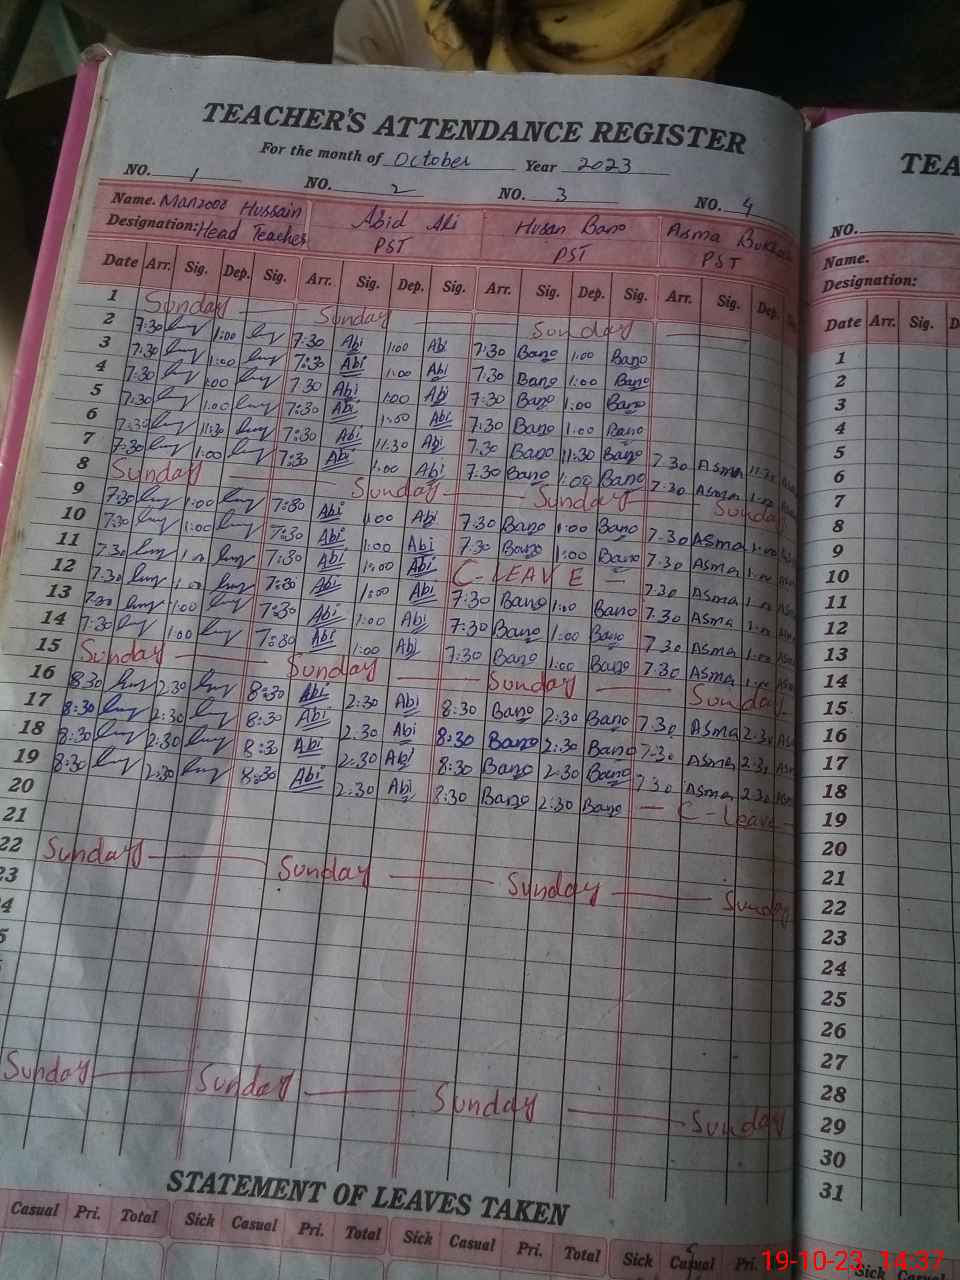 TEACHER'S ATTENDANCE REGISTER TEA
For the month of October Year 2023
NO. 1 NO. 2 NO. 3 NO. 4 NO.
Name. Manzoor Hussain Abid Ali Husan Bano Asma Name.
Designation: Head Teacher PST PST PST Designation:
Date Arr. Sig. Dep. Sig. Arr. Sig. Dep. Sig. Arr. Sig. Dep. Sig. Arr. Sig. Dep. Date Arr. Sig. D
1 Sunday Sunday Sunday 1
2 7:30 1:00 7:30 Abi 1:00 Abi 7:30 Bano 1:00 Bano 2
3 7:30 1:00 7:30 Abi 1:00 Abi 7:30 Bano 1:00 Bano 3
4 7:30 1:00 7:30 Abi 1:00 Abi 7:30 Bano 1:00 Bano 4
5 7:30 1:00 7:30 Abi 1:00 Abi 7:30 Bano 1:00 Bano 5
6 7:30 11:30 7:30 Abi 11:30 Abi 7:30 Bano 11:30 Bano 7:30 Asma 11:30 6
7 7:30 1:00 7:30 Abi 1:00 Abi 7:30 Bano 1:00 Bano 7:30 Asma 1:00 7
8 Sunday Sunday Sunday Sunday 8
9 7:30 1:00 7:30 Abi 1:00 Abi 7:30 Bano 1:00 Bano 7:30 Asma 1:00 9
10 7:30 1:00 7:30 Abi 1:00 Abi 7:30 Bano 1:00 Bano 7:30 Asma 1:00 10
11 7:30 1:00 7:30 Abi 1:00 Abi C-LEAVE 7:30 Asma 1:00 11
12 7:30 1:00 7:30 Abi 1:00 Abi 7:30 Bano 1:00 Bano 7:30 Asma 1:00 12
13 7:30 1:00 7:30 Abi 1:00 Abi 7:30 Bano 1:00 Bano 7:30 Asma 1:00 13
14 7:30 1:00 7:30 Abi 1:00 Abi 7:30 Bano 1:00 Bano 7:30 Asma 1:00 14
15 Sunday Sunday Sunday Sunday 15
16 8:30 2:30 8:30 Abi 2:30 Abi 8:30 Bano 2:30 Bano 7:30 Asma 2:30 16
17 8:30 2:30 8:30 Abi 2:30 Abi 8:30 Bano 2:30 Bano 7:30 Asma 2:30 17
18 8:30 2:30 8:30 Abi 2:30 Abi 8:30 Bano 2:30 Bano 7:30 Asma 2:30 18
19 8:30 2:30 8:30 Abi 2:30 Abi 8:30 Bano 2:30 Bano C-Leave 19
20 20
21 21
22 Sunday Sunday Sunday Sunday 22
23 23
4 24
5 25
26
27
28
Sunday Sunday Sunday Sunday 29
30
31
STATEMENT OF LEAVES TAKEN
Casual Pri. Total Sick Casual Pri. Total Sick Casual Pri. Total Sick Casual Pri. Sick Casual
19-10-23, 14:37